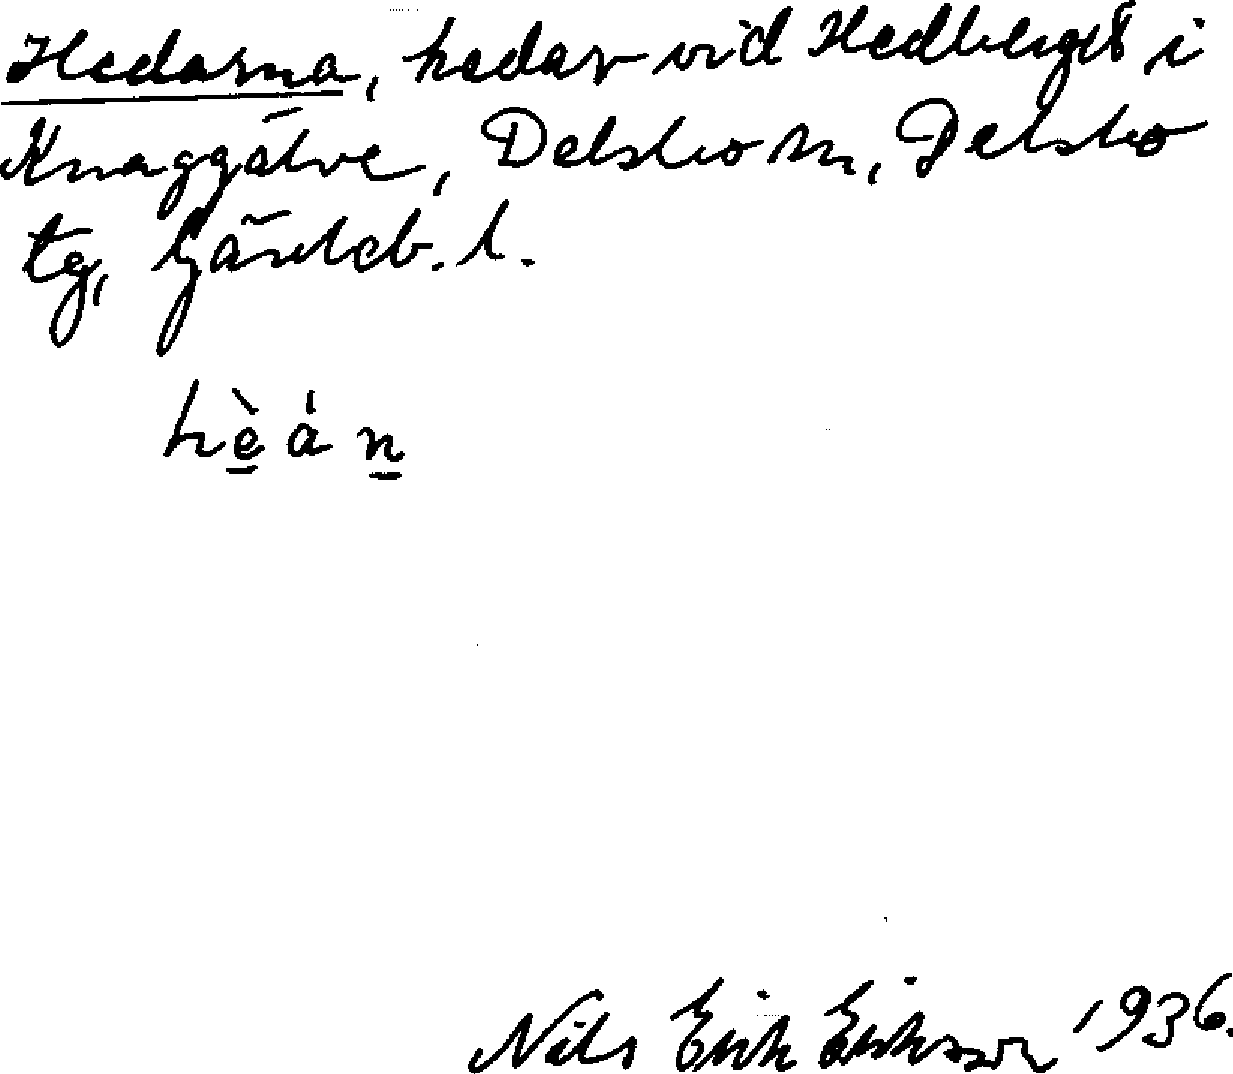 Hedarna, hedar vid Hedberget i
Knaggälve, Delsbo sn, Delsbo
tg, Gävleb. l.
hèán
Nils Erik Eriksson 1936.